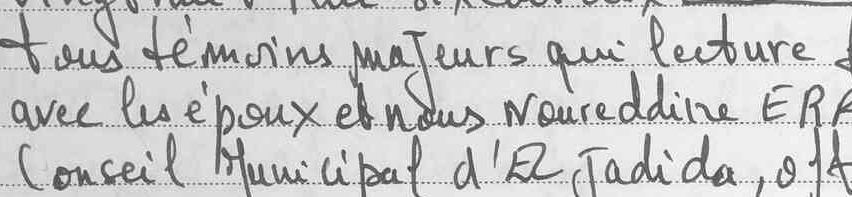 tous témoins majeurs qui lecture
avec les époux et nous Noureddine
Conseil Municipal d'El Jadida,